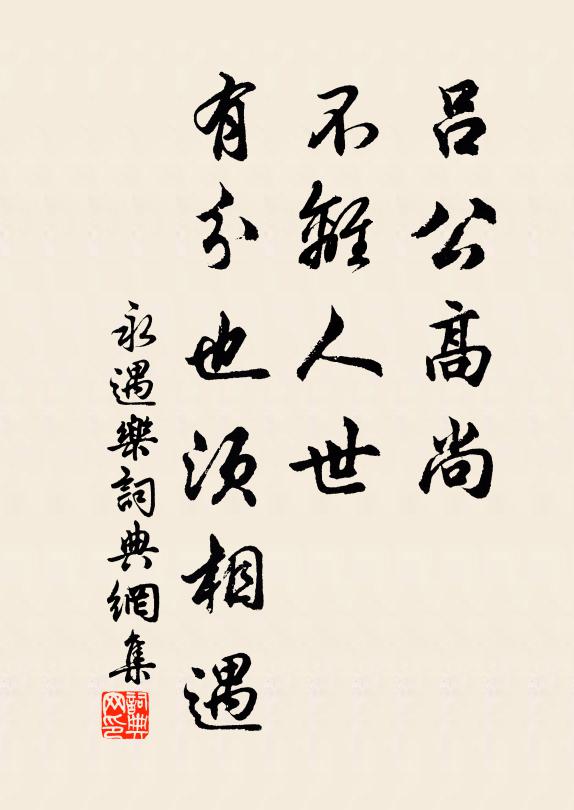 吕公高尚
不離人世
有分也須相遇
永遇樂詞典網集
詞典网印